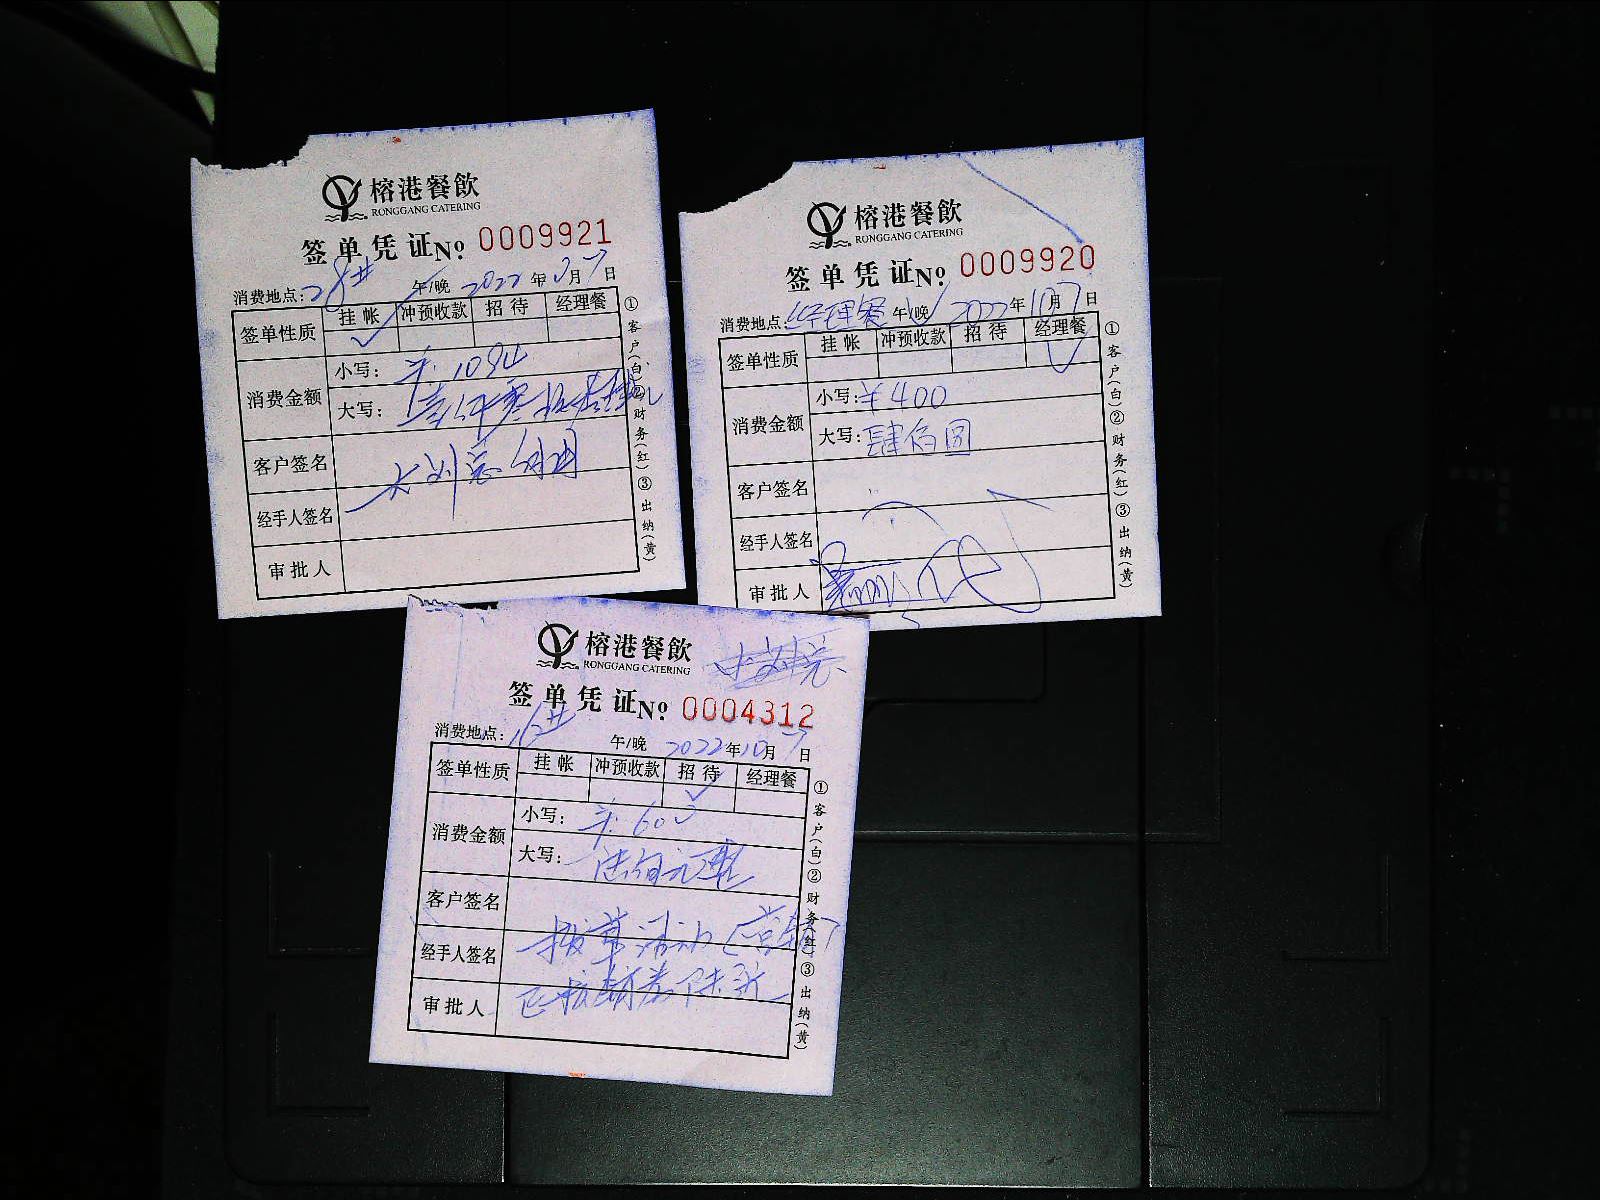 榕港餐飲
RONGGANG CATERING
签单凭证 No 0009921
消费地点: 28# 午/晚 2022年 月7日
签单性质 挂帐 冲预收款 招待 经理餐
消费金额 小写: ¥1094
大写:
客户签名
经手人签名
审批人
①客户(白)②财务(红)③出纳(黄)
榕港餐飲
RONGGANG CATERING
签单凭证 No 0009920
消费地点: 经理餐 午/晚 2022年10月7日
签单性质 挂帐 冲预收款 招待 经理餐
消费金额 小写: ¥400
大写: 肆佰圆
客户签名
经手人签名
审批人
①客户(白)②财务(红)③出纳(黄)
榕港餐飲
RONGGANG CATERING
签单凭证 No 0004312
消费地点: 午/晚 2022年10月7日
签单性质 挂帐 冲预收款 招待 经理餐
消费金额 小写: ¥600
大写: 陆佰元整
客户签名
经手人签名
审批人
①客户(白)②财务(红)③出纳(黄)